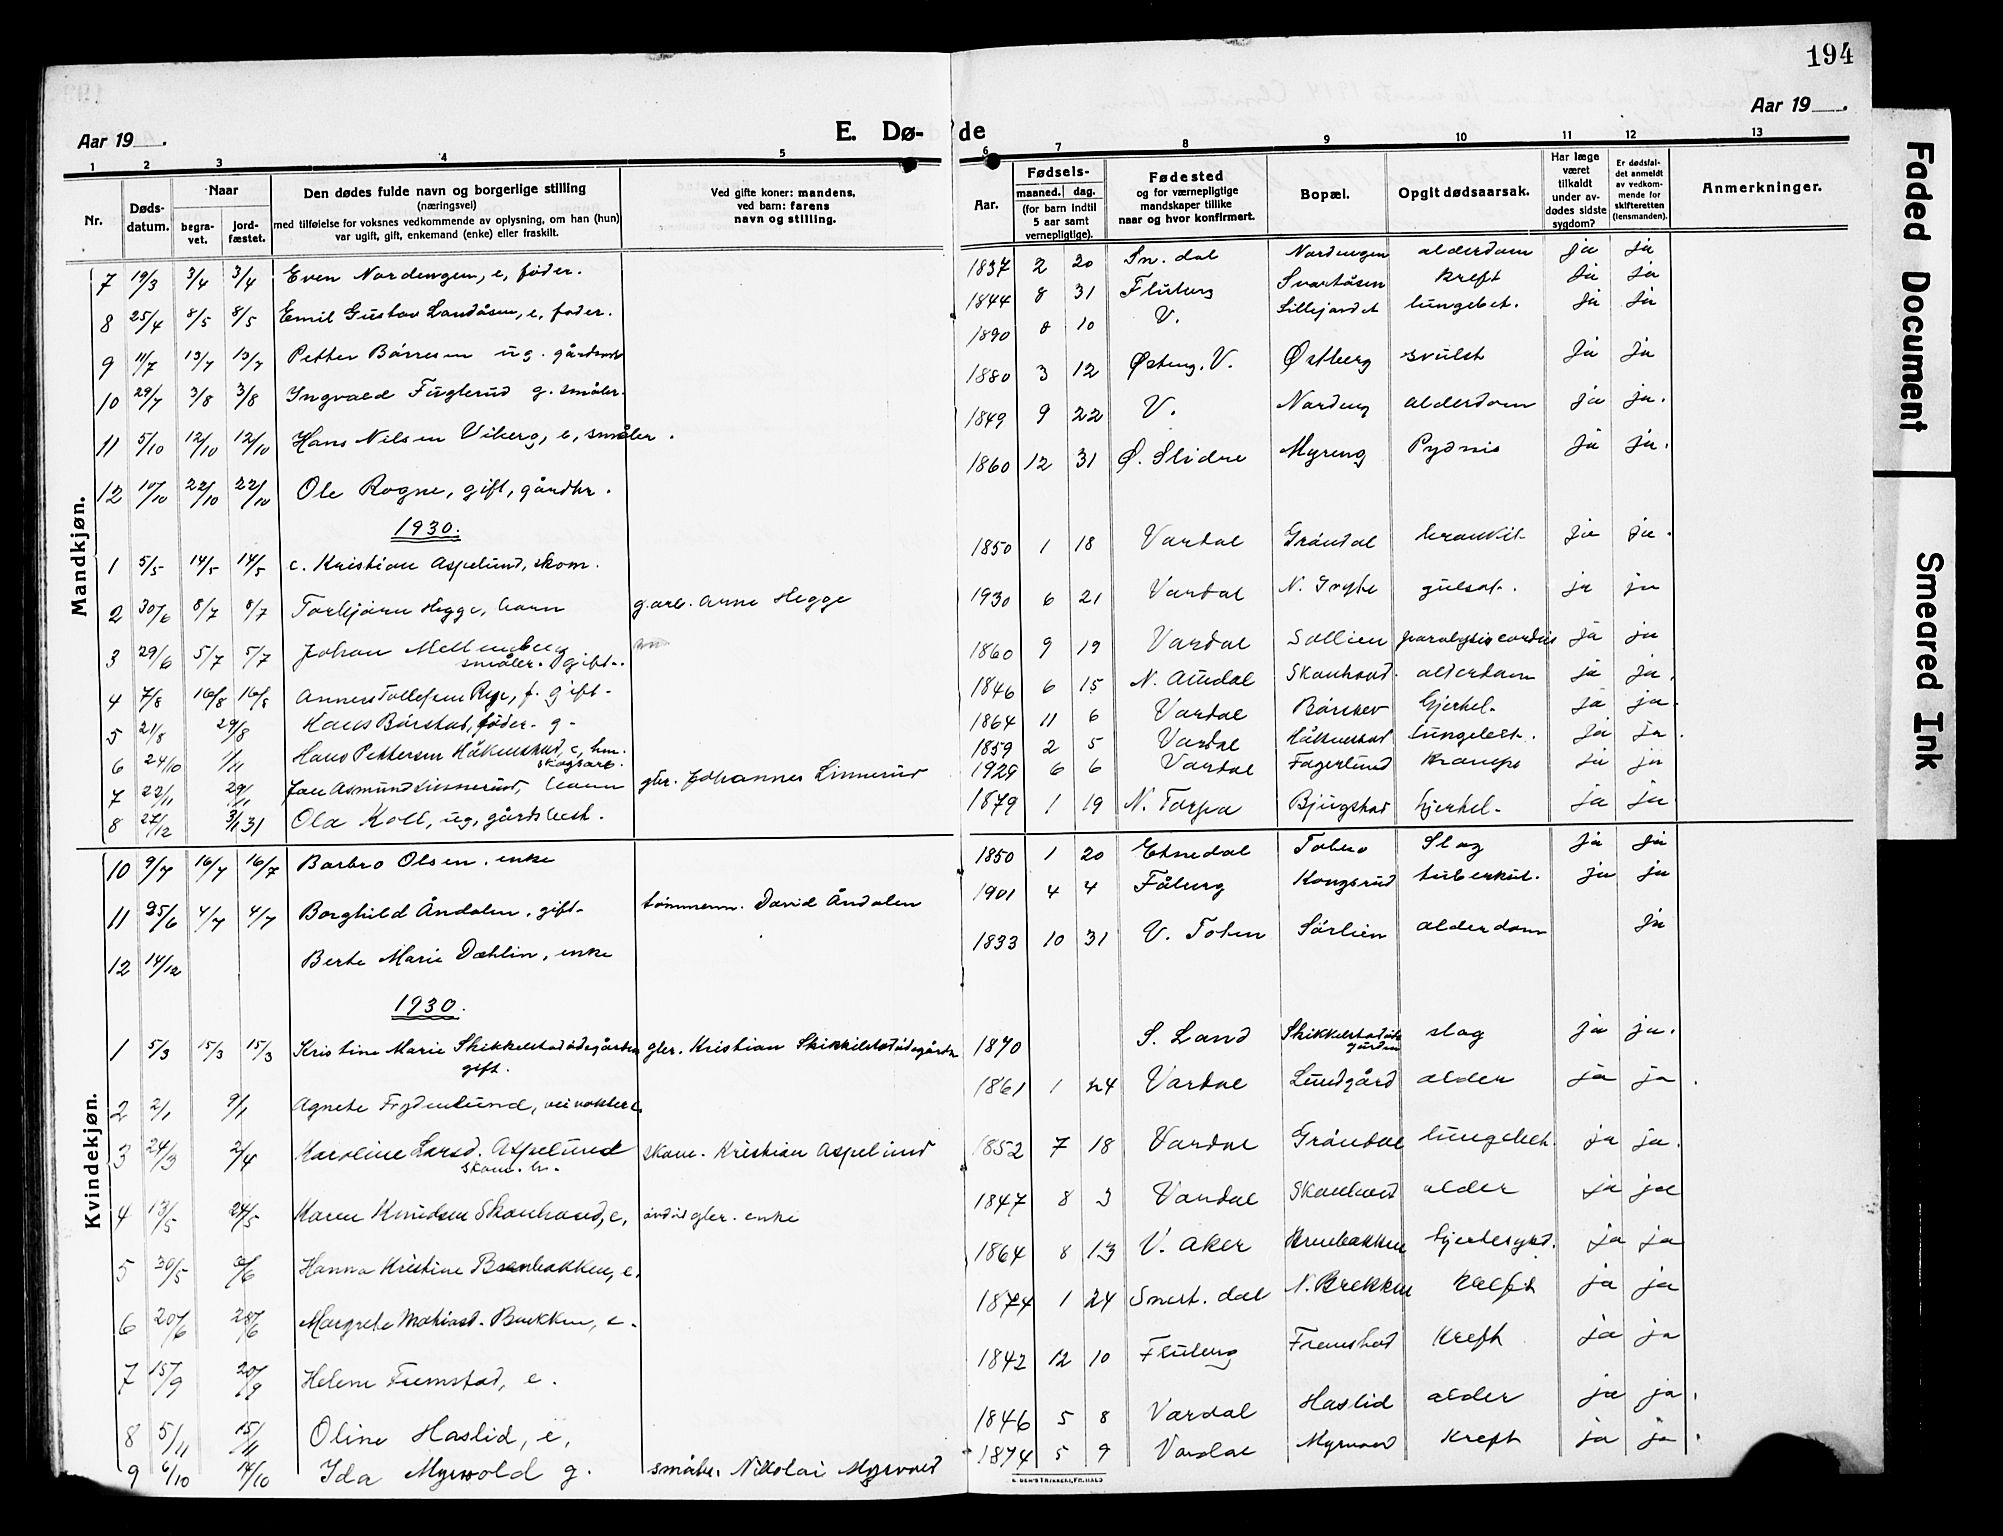 194
Aar 19 .
Aar 19 .
E. Dø- de
1 2 3 4 5 6 7 8 9 10 11 12 13
Nr.
Døds-
datum.
Naar
begra-
vet.
jord-
fæstet.
Den dødes fulde navn og borgerlige stilling
(næringsvei)
med tilføielse for voksnes vedkommende av oplysning, om han (hun)
var ugift, gift, enkemand (enke) eller fraskilt.
Ved gifte koner: mandens,
ved barn: farens
navn og stilling.
Aar.
Fødsels-
maaned. dag.
(for barn indtil
5 aar samt
vernepligtige).
Fødested
og for værnepligtige
mandskaper tillike
naar og hvor konfirmert.
Bopæl.
Opgit dødsaarsak.
Har læge
været
tilkaldt
under av-
dødes sidste
sygdom?
Er dødsfal-
det anmeldt
av vedkom-
mende for
skifteretten
(lensmanden).
Anmerkninger.
Mandkjøn.
7 19/3 3/4 3/4 Even Nordengen, e, føder. 1837 2 20 Sn. dal Nordengen alderdom ja ja
8 25/4 8/5 8/5 Emil Gustav Landåsen, e, føder. 1844 8 31 Fluberg Svartåsen kreft ja ja
9 11/7 13/7 13/7 Petter Børresen ug. 1890 8 10 V. Lillejordet lungebet. ja ja
10 29/7 3/8 3/8 Ingvald Fuglerud g. småbr. 1880 3 12 V. Østberg svulst ja ja
11 5/10 12/10 12/10 Hans Nilsen Viberg, e, småbr. 1849 9 22 V. Nordeng alderdom ja ja.
12 10/10 22/10 22/10 Ole Rogne, gift, gårdbr. 1860 12 31 Ø. Slidre Myreng ja ja.
1930.
1 5/5 14/5 14/5 e. Kristian Aspelund, skom. 1850 1 18 Vardal Gröndal bronkit. ja ja.
2 30/6 8/7 8/7 Torbjørn Hegge, barn g.arb. Arne Hegge 1930 6 21 Vardal gulsot. ja ja
3 29/6 5/7 5/7 Johan småbr. gift. 1860 9 19 Vardal Sollien paralysis cordis ja ja
4 7/8 16/8 16/8 Anders Tollefsen f. gift. 1846 6 15 N. Aurdal alderdom ja ja.
5 21/8 29/8 Hans Børstad, føder. g. 1864 11 6 Vardal hjertel. ja ja.
6 24/10 1/11 Hans Pettersen Håkenstad, e, hm. skogsarb. 1859 2 5 Vardal Håkenstad lungebet. ja ja.
7 22/11 29/11 Jan Asmund Linnerud, barn gbr. Johannes Linnerud 1929 6 6 Vardal Fagerlund krampe ja ja
8 27/12 3/1 31 Ola Koll, ug, gårdsbest. 1879 1 19 N. Torpa Bjugstad hjertel. ja ja
Kvindekjøn.
10 9/7 16/7 16/7 Barbro Olsen. enke 1850 1 20 Etnedal Slag ja ja
11 25/6 4/7 4/7 Borghild Åndalen, gift. tømmerm. David Åndalen 1901 4 4 Fåberg Kongsrud tuberkul. ja ja
12 14/12 Berte Marie Dæhlin, enke 1833 10 31 V. Toten Sörlien alderdom ja
1930.
1 5/3 15/3 15/3 Kristine Marie Skikkelstadødegården gift. gbr. Kristian Skikkelstadødegården 1870 S. Land Skikkelstadøde gården slag ja ja.
2 2/1 9/1 Agnete Frydenlund, veivokter e. 1861 1 24 Vardal Lundgård alder ja ja.
3 24/3 2/4 Karoline Larsd. Aspelund skom. h. skom. Kristian Aspelund 1852 7 18 Vardal Gröndal lungebet. ja ja.
4 13/5 24/5 Karen Knudsen Skonhovd, e, gbr. enke 1847 8 3 Vardal Skonhovd alder ja ja
5 30/5 Hanna Kristine Brenbakken, e. 1864 8 13 V. Aker Brenbakken hjertesykd. ja ja
6 20/6 28/6 Margrete Mathiasd. Brekken, e. 1874 1 24 Snert. dal N. Brekken kreft ja ja
7 15/9 20/9 Helene Fremstad, e. 1842 12 10 Fluberg Fremstad kreft ja ja
8 5/11 15/11 Oline Haslid, e, 1846 5 8 Vardal Haslid alder ja ja.
9 6/10 14/10 Ida Myrvold g. småbr. Nikolai Myrvold 1874 5 9 Vardal Myrvold kreft ja ja.
Faded Document
Smeared Ink